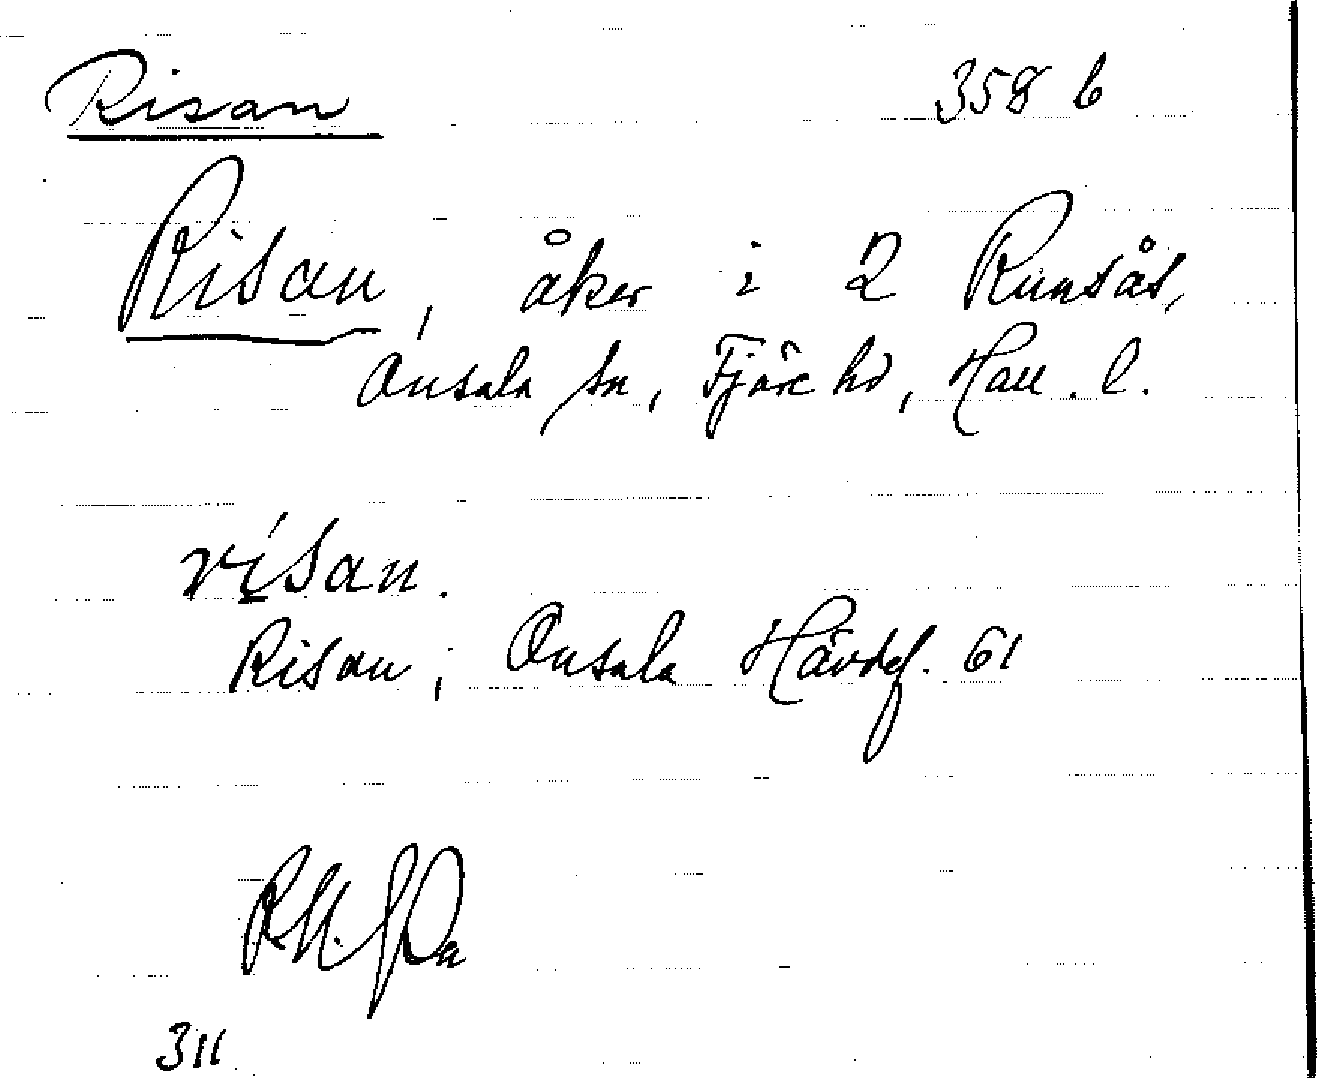 Risan 358 b
Risan, åker i 2 Rumsås,
Onsala sn, Fjäre hd, Hall. l.
risan.
Risan, Onsala Hävdef. 61
311